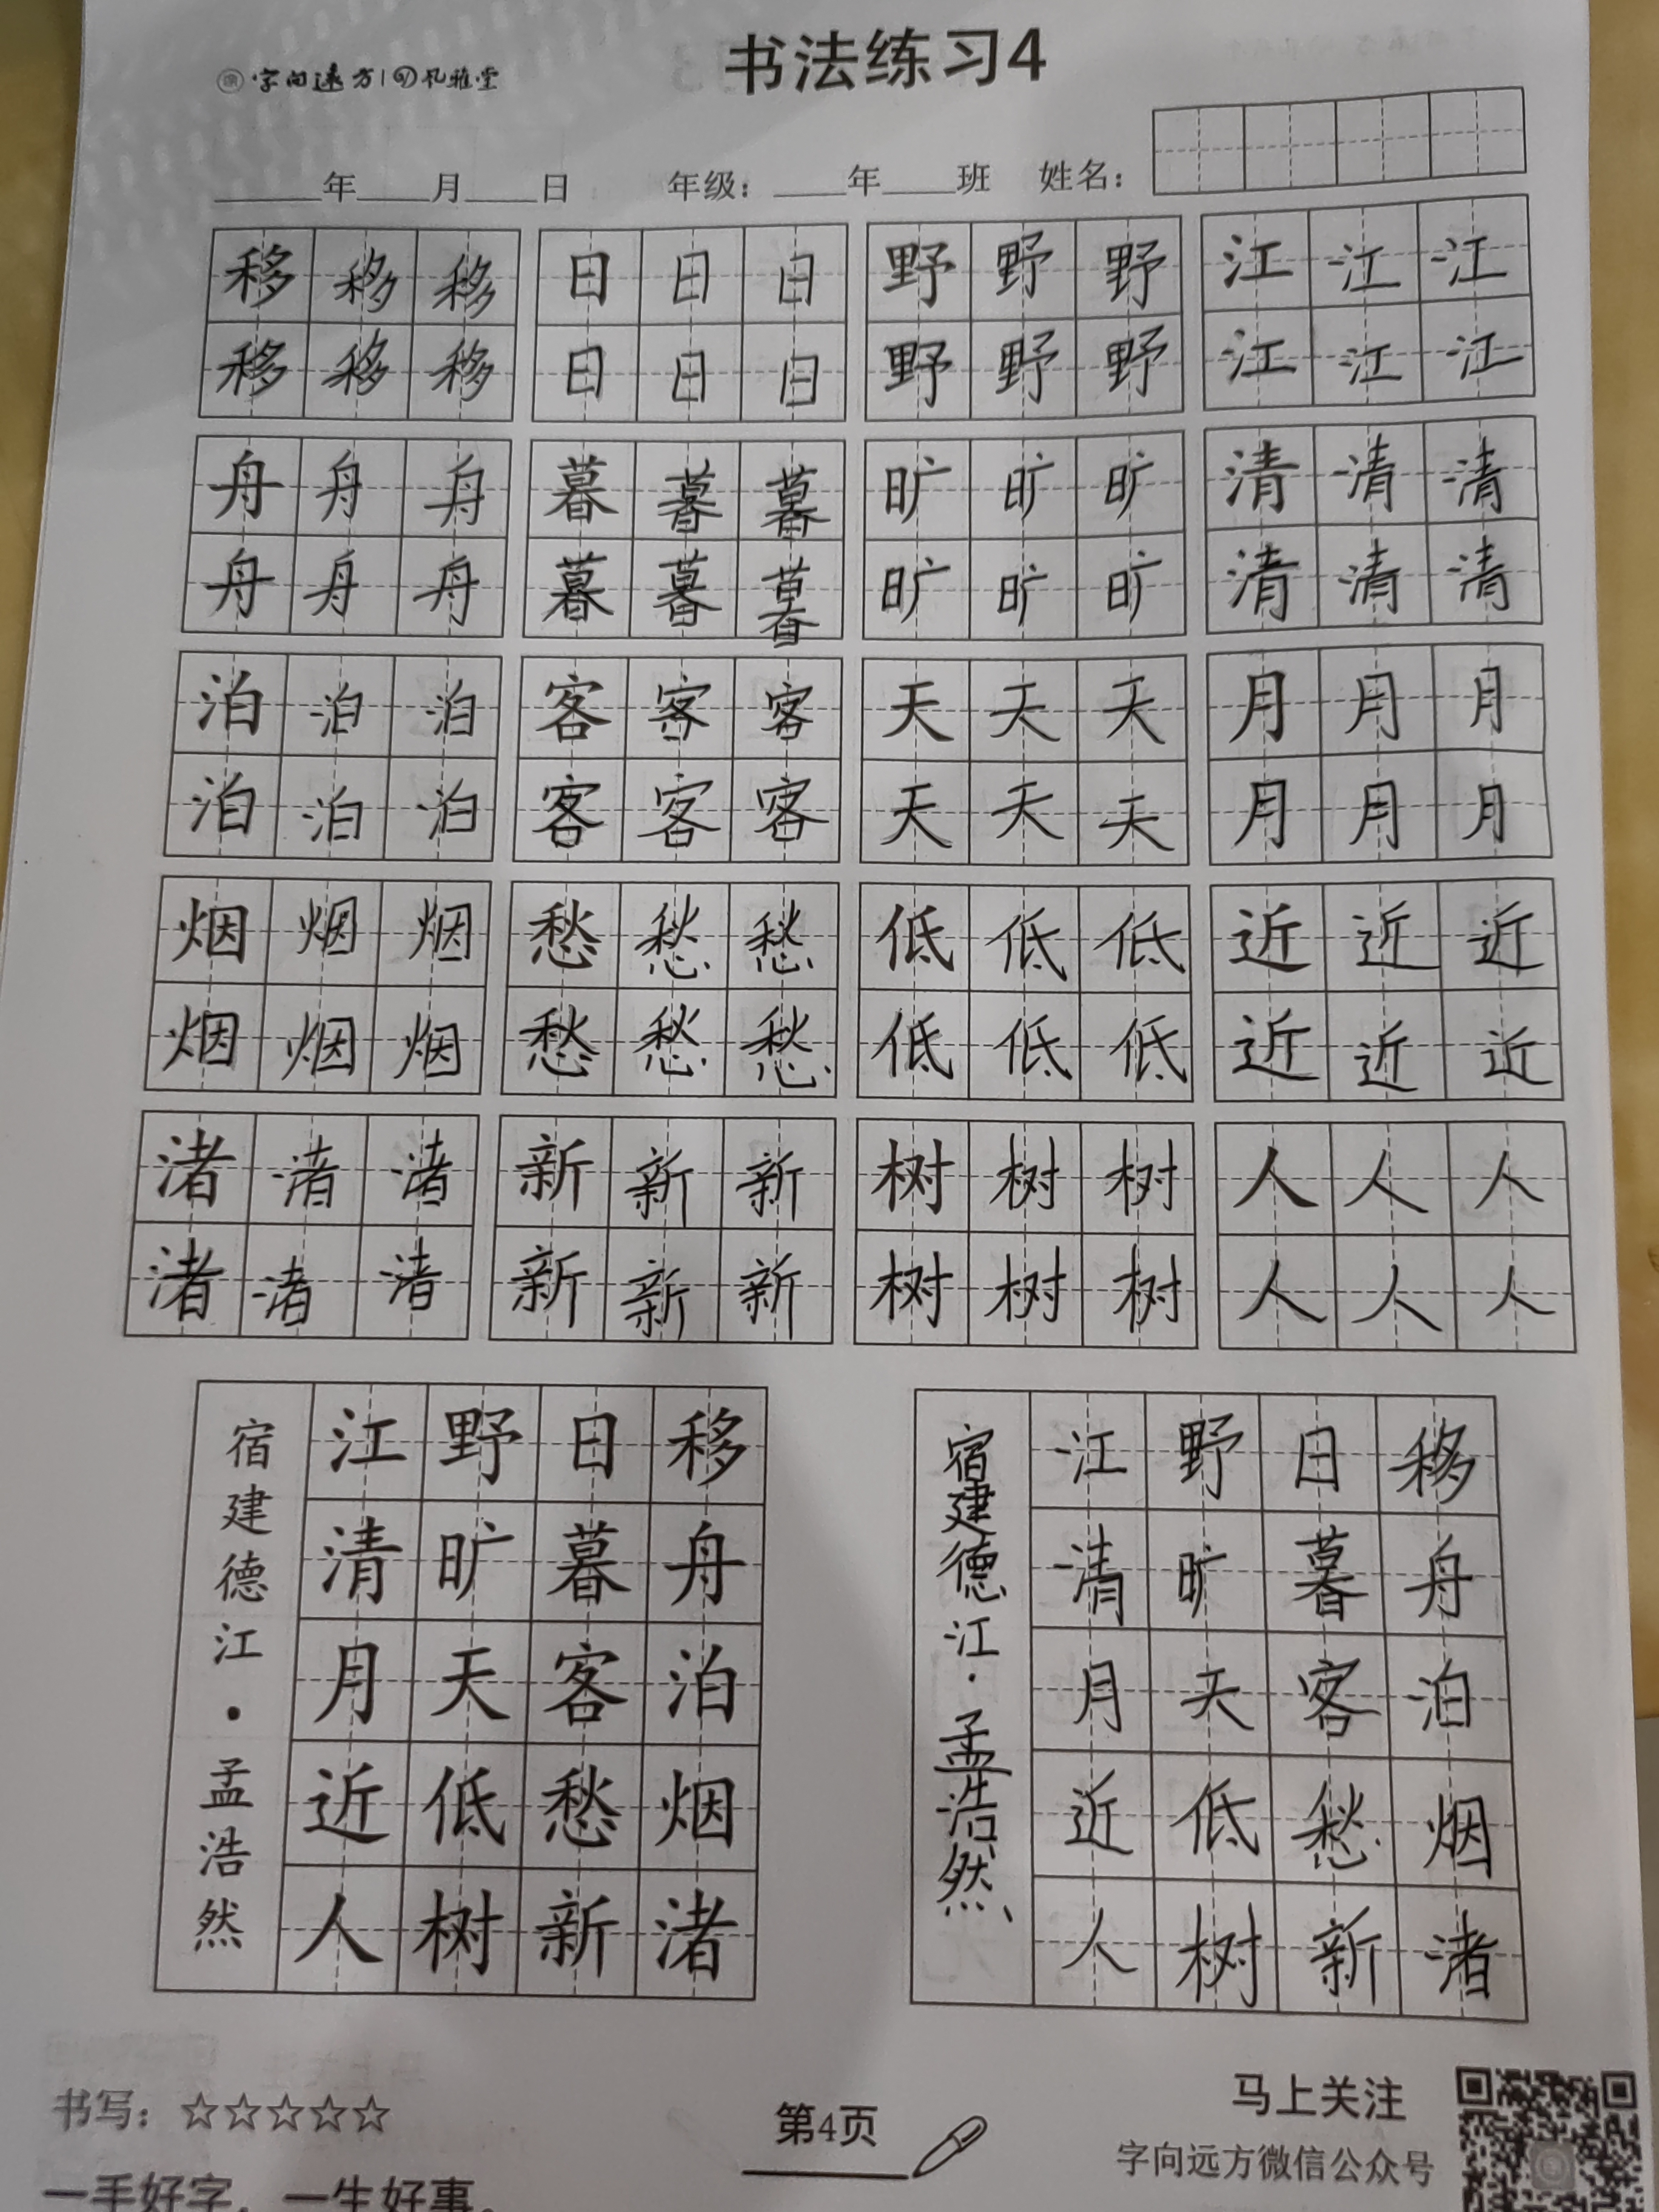 字向远方 风雅堂
书法练习4
年 月 日 年级: 年 班 姓名:
移移移 日日日 野野野 江江江
移移移 日日日 野野野 江江江
舟舟舟 暮暮暮 旷旷旷 清清清
舟舟舟 暮暮暮 旷旷旷 清清清
泊泊泊 客客客 天天天 月月月
泊泊泊 客客客 天天天 月月月
烟烟烟 愁愁愁 低低低 近近近
烟烟烟 愁愁愁 低低低 近近近
渚渚渚 新新新 树树树 人人人
渚渚渚 新新新 树树树 人人人
移舟泊烟渚
日暮客愁新
野旷天低树
江清月近人
宿建德江·孟浩然
移舟泊烟渚
日暮客愁新
野旷天低树
江清月近人
宿建德江·孟浩然
书写: ☆☆☆☆☆
第4页
马上关注
字向远方微信公众号
一手好字，一生好事。